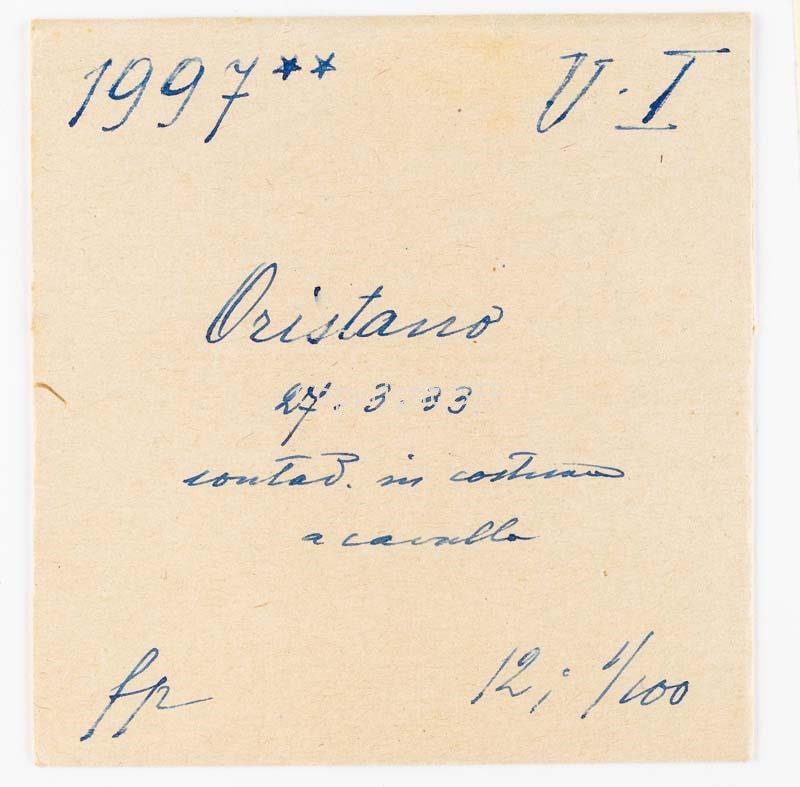 1997** V. I
Oristano
27. 3. 33
contad. in costume
a cavallo
fp 12; 1/100